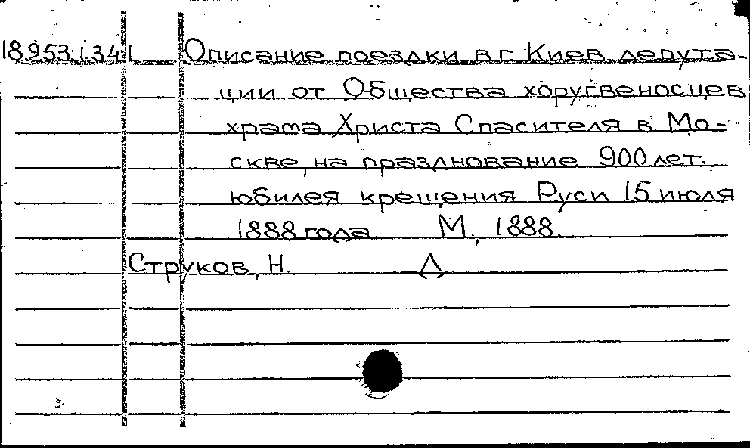 18953.34.1 Описание поездки в г. Киев депута-
ции от Общества хоругвеносцев
храма Христа Спасителя в Мо-
скве, на празднование 900 лет.
юбилея крещения Руси 15 июля
1888 года М., 1888.
Струков, Н. Д